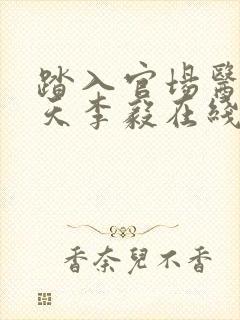 踏入官場醫
天李毅在綫
香奈兒不香